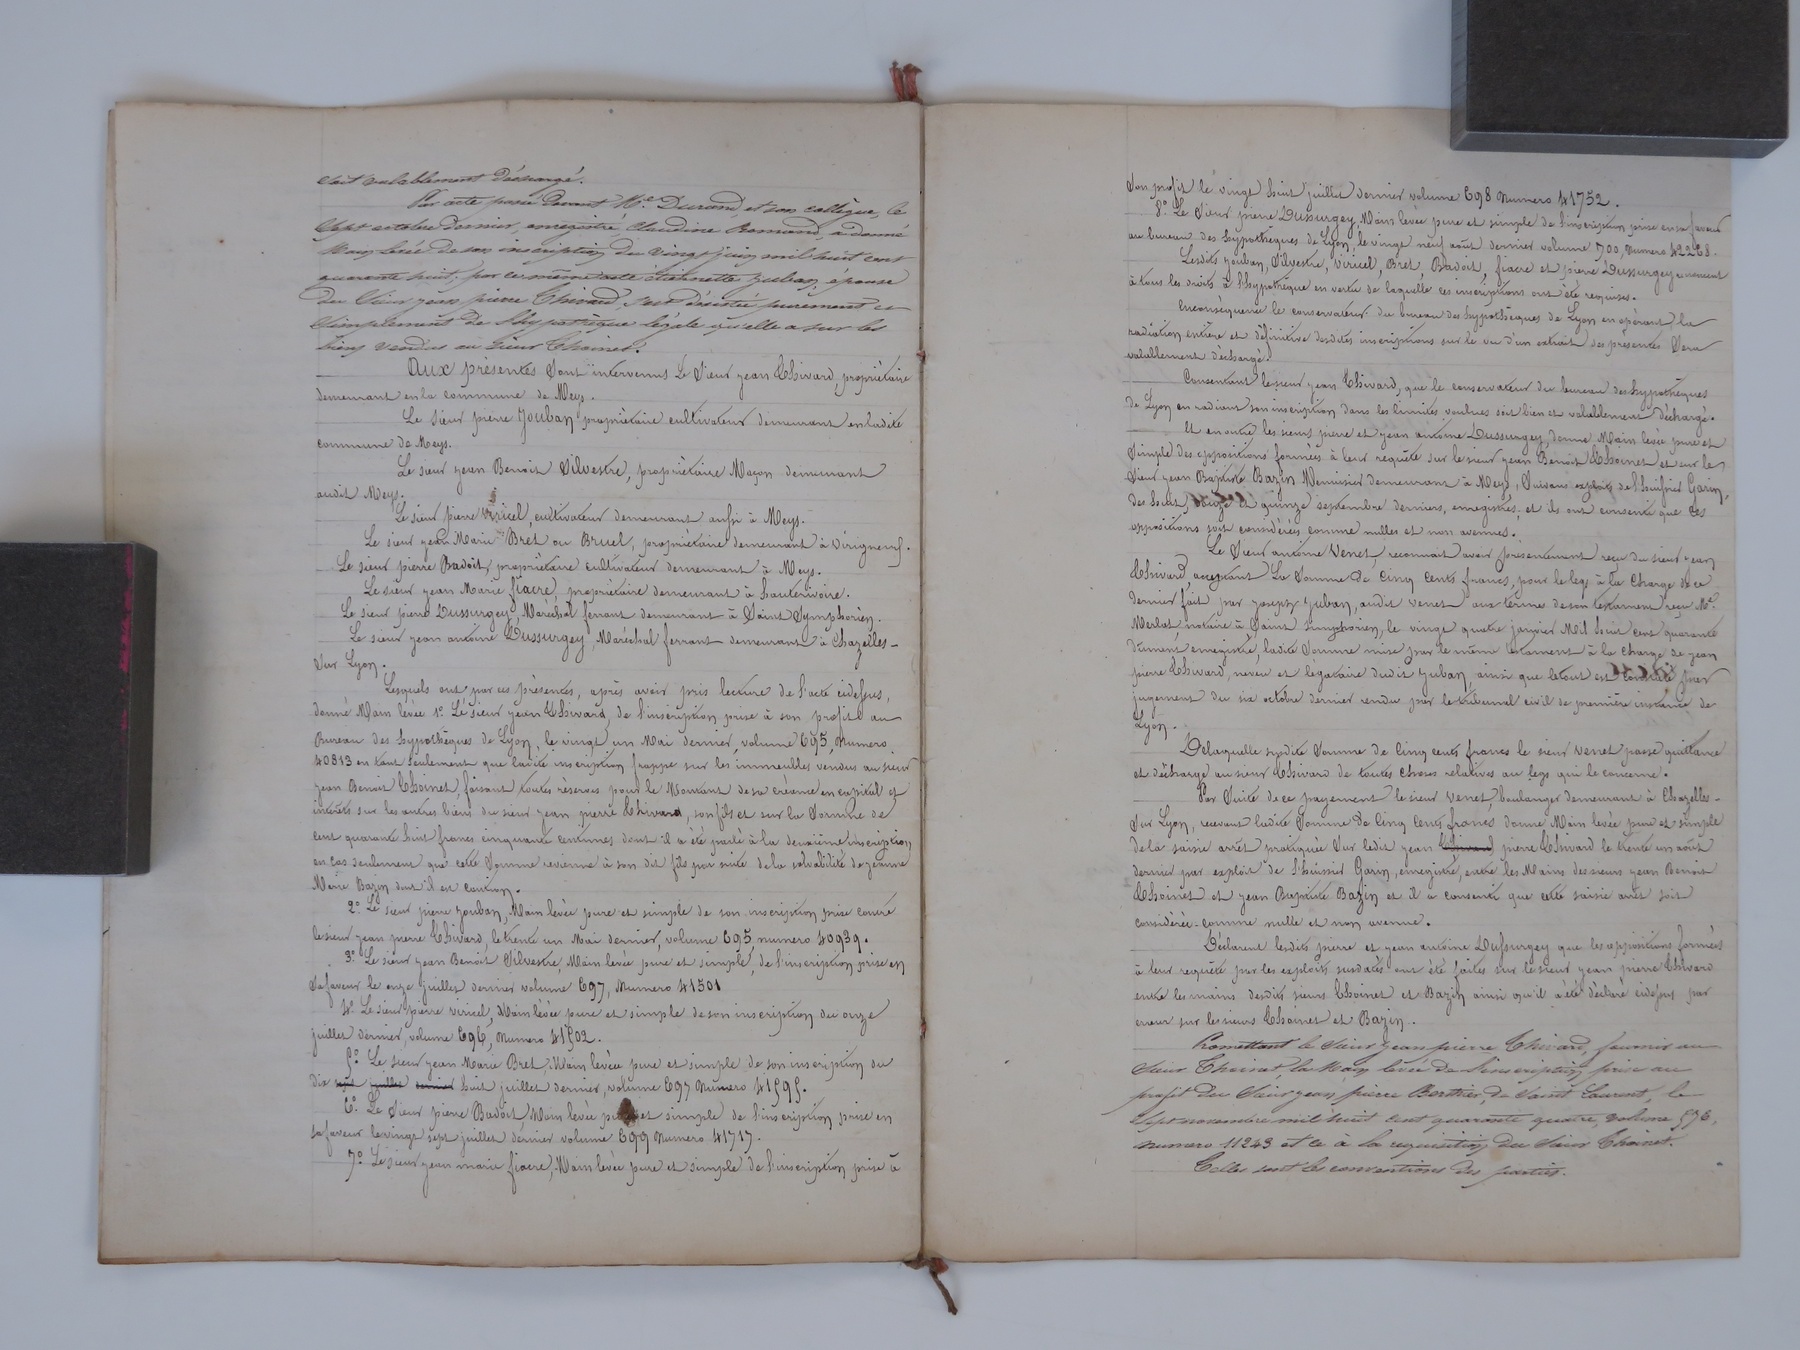 soit valablement déchargé.
Par acte passé devant Me. Durand, et son collègue, le
sept octobre dernier, enregistré, Claudine Romand, a donné
Main levée de son inscription du vingt juin mil huit cent
quarante huit, par ce même acte étiennette Juban, épouse
du Sieur jean pierre Chivard, s'est désistée purement et
Simplement de l'hypothèque légale qu'elle a sur les
biens vendus au Sieur Choinet.
Aux présentes sont intervenus Le Sieur jean Chivard, propriétaire
demeurant en la commune de Meys.
Le Sieur pierre Jouban propriétaire cultivateur demeurant en ladite
commune de Meys.
Le sieur jean Benoit Silvestre, propriétaire Maçon demeurant
audit Meys.
Le sieur pierre Viricel, cultivateur demeurant aussi à Meys.
Le sieur jean Marie Bret ou Bruel, propriétaire demeurant à Virigneux.
Le sieur pierre Badoit, propriétaire cultivateur demeurant à Meys.
Le sieur jean Marie fiacre, propriétaire demeurant à hauterivoire.
Le sieur pierre Dussurgey, Maréchal ferrant demeurant à Saint Symphorien.
Le sieur jean antoine Dussurgey, Maréchal ferrant demeurant à Chazelles-
Sur Lyon.
Lesquels ont par ces présentes, après avoir pris lecture de l'acte cidessus,
donné Main levée 1o. Le sieur jean Chivard, de l'inscription prise à son profit au
Bureau des hypothèques de Lyon, le vingt un Mai dernier, volume 695, numero
40813 en tant seulement que ladite inscription frappe sur les immeubles vendus au sieur
jean Benoit Choinet, faisant toutes réserves pour le Montant de sa créance en capital et
intérêts sur les autres biens du sieur jean pierre Chivard, son fils et sur la Somme de
cent quarante huit francs cinquante centimes dont il a été parlé à la deuxième inscription
en cas seulement que cette Somme revienne à son dit fils par suite de la solvabilité de jeanne
Marie Bazin dont il est caution.
2o. Le sieur pierre Jouban, Main levée pure et simple de son inscription prise contre
le sieur jean pierre Chivard, le trente un Mai dernier, volume 695, numero 40939.
3o. Le sieur jean Benoit Silvestre, Main levée pure et simple, de l'inscription prise en
Sa faveur le onze juillet dernier volume 697, Numero 41501
4o. Le sieur pierre viricel, Main levée pure et simple de son inscription du onze
juillet dernier, volume 696, Numero 41502.
5o. Le sieur jean Marie Bret, Main levée pure et simple de son inscription du
dix sept juillet dernier huit juillet dernier, volume 697 Numero 41595.
6o. Le Sieur pierre Badoit, Main levée pure et simple de l'inscription prise en
sa faveur le vingt sept juillet dernier volume 699 Numero 41717.
7o. Le sieur jean marie fiacre, Main levée pure et simple de l'inscription prise à
Son profit le vingt huit juillet dernier volume 698 Numero 41752.
8o. Le Sieur pierre Dussurgey, Main levée pure et simple de l'inscription prise en sa faveur
au bureau des hypothèques de Lyon, le vingt neuf août dernier volume 700, Numero 42268.
Lesdits Jouban, Silvestre, viricel, Bret, Badoit, fiacre et pierre Dussurgey renoncent
à tous les droits à l'hypothèque en vertu de laquelle ces inscriptions ont été requises.
Enconséquence le conservateur du bureau des hypothèques de Lyon en opérant la
radiation entière et définitive desdites inscriptions sur le vu d'un extrait des présentes sera
valablement déchargé.
Consentant le sieur jean Chivard, que le conservateur du bureau des hypothèques
de Lyon en radiant son inscription dans les limites voulues soit bien et valablement déchargé.
Et en outre les sieurs pierre et jean antoine Dussurgey, donne Main levée pure et
Simple des oppositions formées à leur requête sur le sieur jean Benoit Choinet et sur le
Sieur jean Baptiste Bazin Menuisier demeurant à Meys, Suivant exploits de l'huissier Garin,
des huit, onze et quinze septembre derniers, enregistrés, et ils ont consenti que les
oppositions soit considérées comme nulles et non avenues.
Le Sieur antoine Venet, reconnait avoir présentement reçu du sieur jean
Chivard, acceptant La Somme de Cinq Cents francs, pour le legs à la charge de ce
dernier fait par joseph Juban, audit venet aux termes de son testament reçu Me.
Merlat, notaire à Saint Simphorien, le vingt quatre janvier Mil huit cent quarante
dûment enregistré, ladite Somme mise par le même testament à la charge de jean
pierre Chivard, neveu et légataire dudit Juban, ainsi que le tout est constaté par
jugement du six octobre dernier rendu par le tribunal civil de première instance de
Lyon.
De laquelle susdite Somme de Cinq cents francs le sieur venet passe quittance
et décharge au sieur Chivard de toutes choses relatives au legs qui le concerne.
Par Suite de ce payement le sieur venet, boulanger demeurant à Chazelles-
Sur Lyon, recevant ladite Somme de Cinq Cents francs donne Main levée pure et simple
de la saisie arrêt pratiquée Sur ledit jean Chivard pierre Chivard le trente un août
dernier par exploit de l'huissier Garin, enregistré, entre les Mains des sieurs jean Benoit
Choinet et jean Baptiste Bazin et il a consenti que cette saisie arrêt soit
considérée comme nulle et non avenue.
Déclarent lesdits pierre et jean antoine Dussurgey que les oppositions formées
à leur requête par les exploits susdatés ont été faites sur le sieur jean pierre Chivard
entre les mains desdits sieurs Choinet et Bazin ainsi qu'il a été déclaré cidessus par
erreur sur les sieurs Choinet et Bazin.
Promettant le Sieur jean pierre Chivard, fournir au
Sieur Choinet, la Main levée de l'inscription prise au
profit du Sieur jean pierre Berthier de Saint Laurent, le
Sept novembre mil huit cent quarante quatre, volume 576,
numero 11243 et ce à la requisition du Sieur Choinet.
Telles sont les conventions des parties.